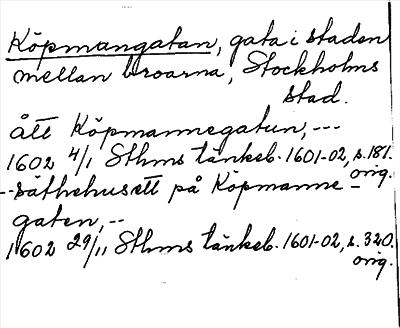 Köpmangatan, gata i staden
mellan broarna, Stockholms
stad.
ått Köpmannegatun, ---
1602 4/1 Sthms tänkeb. 1601-02, s. 181.
orig.
--säthehusett på Köpmanne-
gaten, --
1602 29/11 Sthms tänkeb. 1601-02, s. 320.
orig.